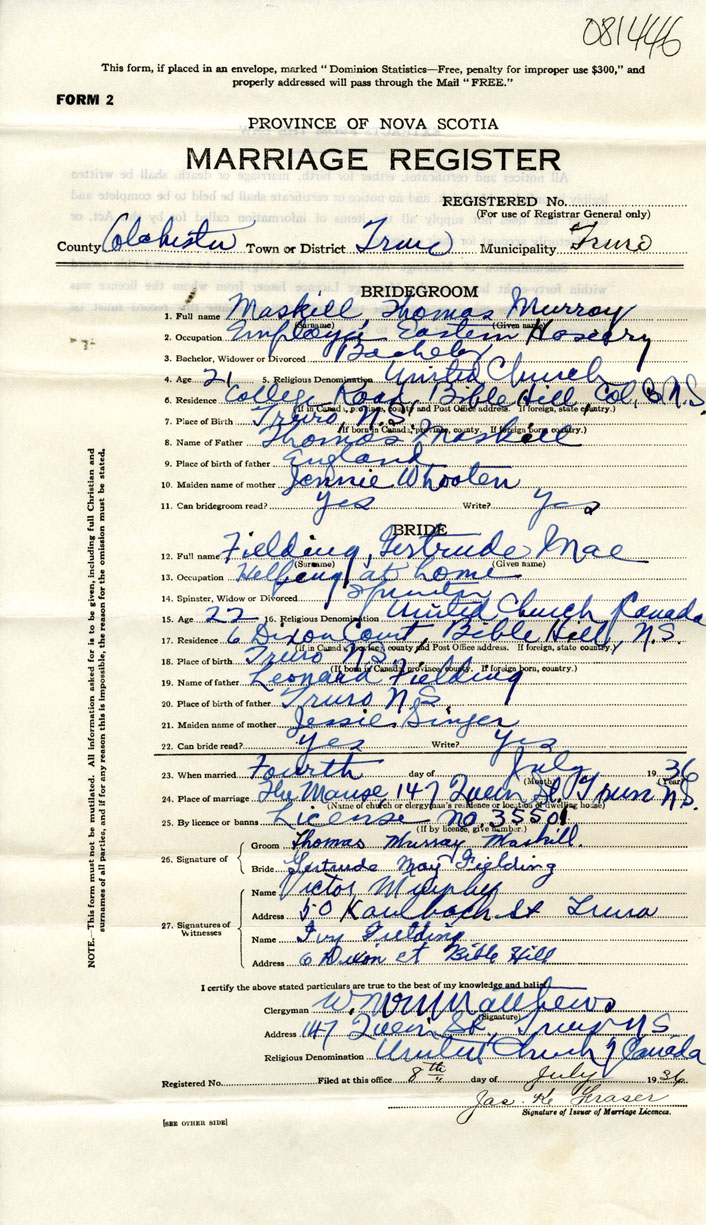 081446
This form, if placed in an envelope, marked "Dominion Statistics—Free, penalty for improper use $300," and
properly addressed will pass through the Mail "FREE."
FORM 2
PROVINCE OF NOVA SCOTIA
MARRIAGE REGISTER
REGISTERED No.
(For use of Registrar General only)
County Colchester Town or District Truro Municipality Truro
BRIDEGROOM
1. Full name Maskill, Thomas Murray
(Surname) (Given name)
2. Occupation Employé Eastern Hosiery
3. Bachelor, Widower or Divorced Bachelor
4. Age 21 5. Religious Denomination United Church
6. Residence College Road, Bible Hill, Col. Co. N.S.
(If in Canada, province, county and Post Office address. If foreign, state country.)
7. Place of Birth Truro, N.S.
(If born in Canada, province, county. If foreign born, country.)
8. Name of Father Thomas Maskill
9. Place of birth of father England
10. Maiden name of mother Jennie Whooten
11. Can bridegroom read? Yes Write? Yes
BRIDE
12. Full name Fielding, Gertrude Mae
(Surname) (Given name)
13. Occupation Helping at home
14. Spinster, Widow or Divorced Spinster
15. Age 22 16. Religious Denomination United Church Canada
17. Residence 6 Dixon Court, Bible Hill, N.S.
(if in Canada, province, county and Post Office address. If foreign, state country.)
18. Place of birth Truro N.S.
(If born in Canada, province, county. If foreign born, country.)
19. Name of father Leonard Fielding
20. Place of birth of father Truro N.S
21. Maiden name of mother Jessie Singer
22. Can bride read? Yes Write? Yes
23. When married Fourth day of July 1936
(Month) (Year)
24. Place of marriage The Manse, 147 Queen St. Truro N.S.
(Name of church or clergyman's residence or location of dwelling house)
25. By licence or banns License no. 35501
(If by licence, give number.)
26. Signature of Groom Thomas Murray Maskill.
Bride Gertrude May Fielding
27. Signatures of Witnesses
Name Victor Murphy
Address 50 Kaulbach St Truro
Name Ivy Fielding
Address 6 Dixon ct Bible Hill
I certify the above stated particulars are true to the best of my knowledge and belief.
Clergyman W. Matthews
(Signature)
Address 147 Queen St., Truro N S
Religious Denomination United Church of Canada
Registered No. Filed at this office 8th day of July 1936
Jas. K. Fraser
Signature of Issuer of Marriage Licences.
[SEE OTHER SIDE]
NOTE.—This form must not be mutilated. All information asked for is to be given, including full Christian and
surnames of all parties, and if for any reason this is impossible, the reason for the omission must be stated.